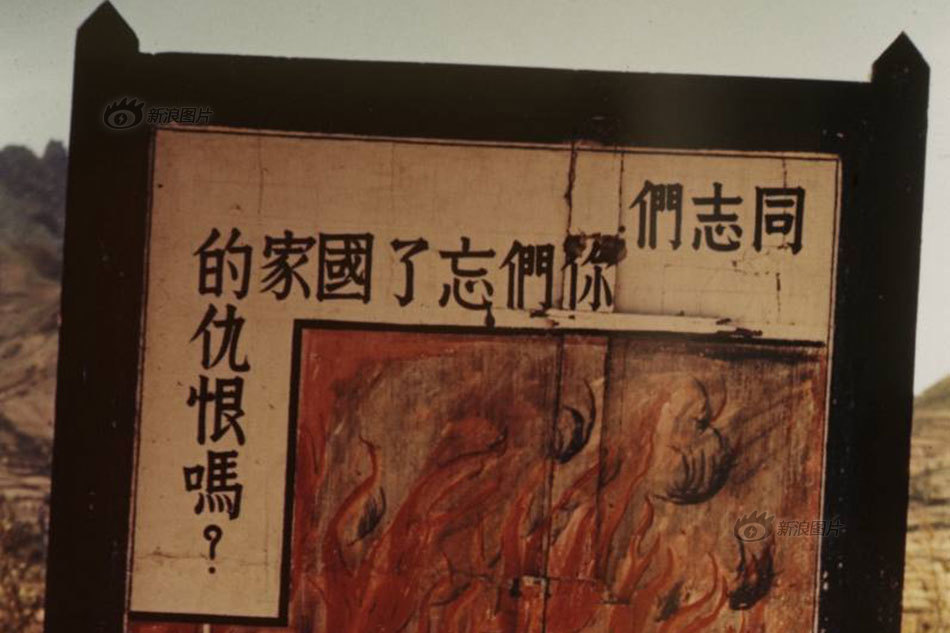 同志們
你們忘了國家的仇恨嗎?
新浪图片
新浪图片